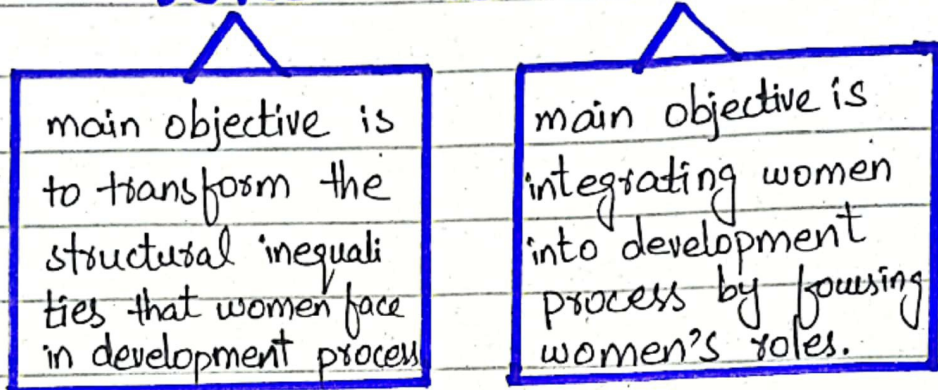 main objective is
to transform the
structural inequali
ties that women face
in development process
main objective is
integrating women
into development
process by fousing
women's roles.